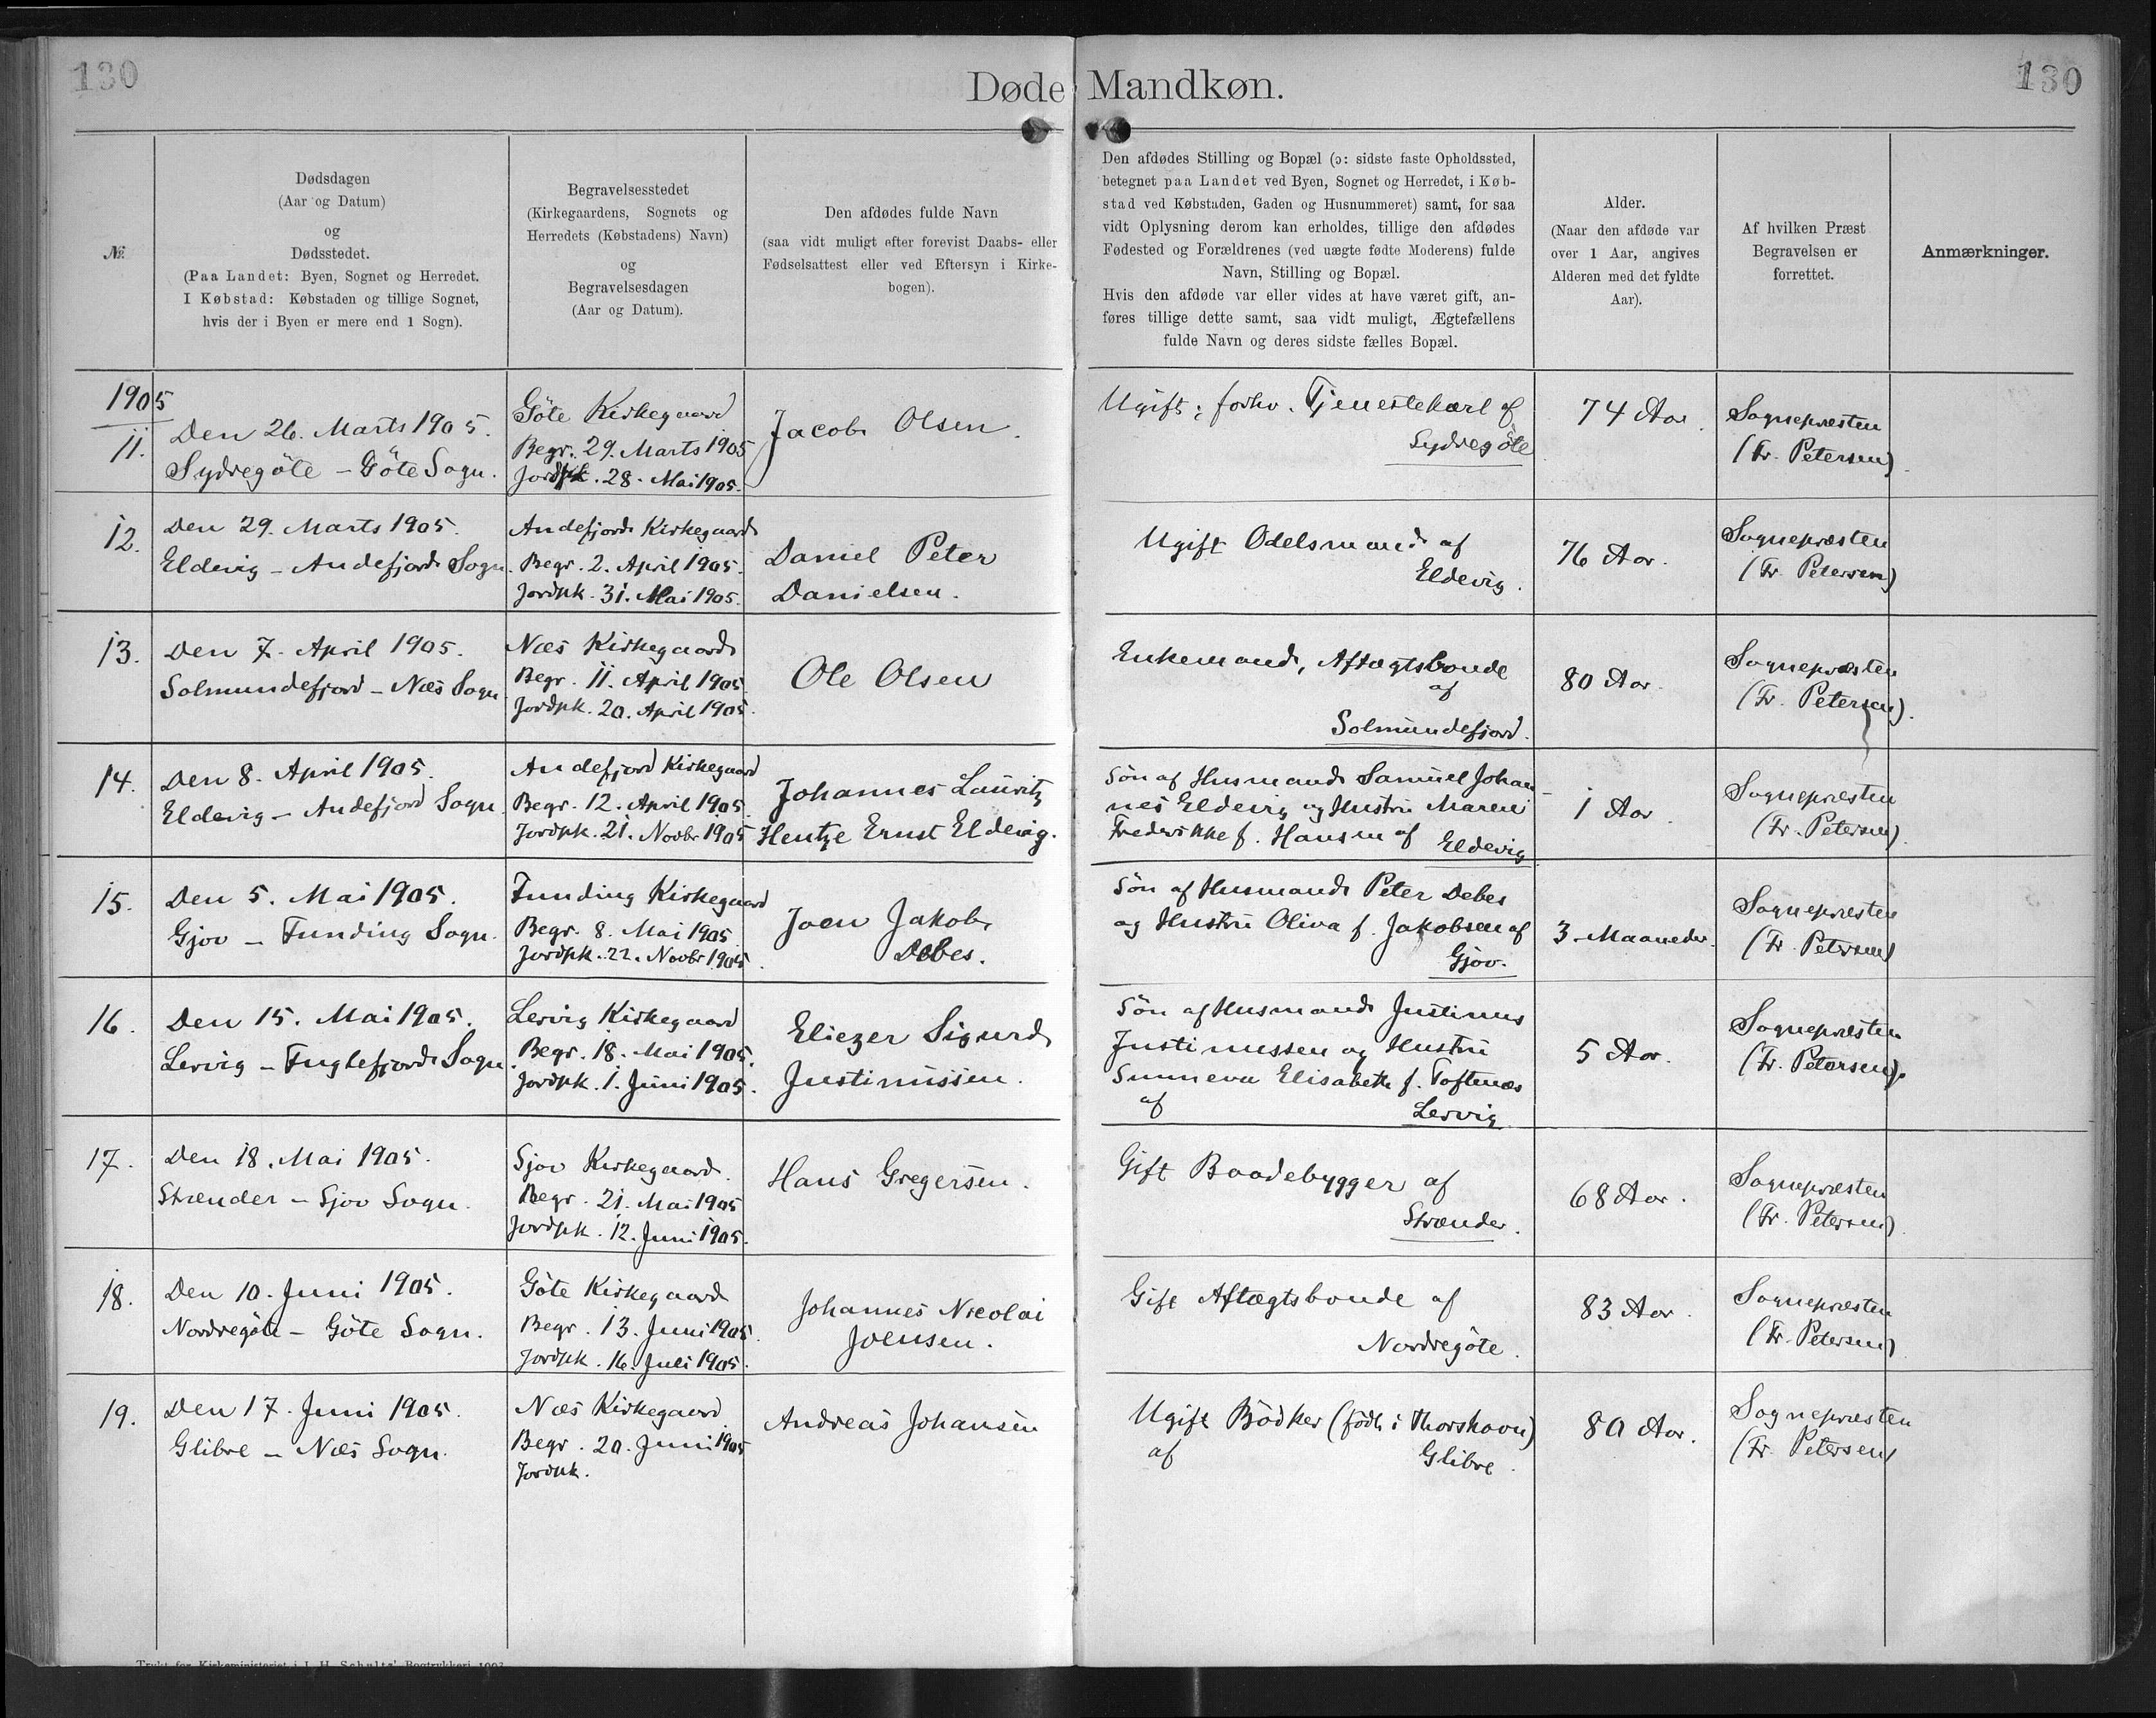 130
Døde Mandkøn.
130
№
Dødsdagen
(Aar og Datum)
og
Dødsstedet.
(Paa Landet: Byen, Sognet og Herredet.
I Købstad: Købstaden og tillige Sognet,
hvis der i Byen er mere end 1 Sogn).
Begravelsesstedet
(Kirkegaardens, Sognets og
Herredets (Købstadens) Navn)
og
Begravelsesdagen
(Aar og Datum).
Den afdødes fulde Navn
(saa vidt muligt efter forevist Daabs- eller
Fødselsattest eller ved Eftersyn i Kirke-
bogen).
Den afdødes Stilling og Bopæl (ɔ: sidste faste Opholdssted,
betegnet paa Landet ved Byen, Sognet og Herredet, i Køb-
stad ved Købstaden, Gaden og Husnummeret) samt, for saa
vidt Oplysning derom kan erholdes, tillige den afdødes
Fødested og Forældrenes (ved uægte fødte Moderens) fulde
Navn, Stilling og Bopæl.
Hvis den afdøde var eller vides at have været gift, an-
føres tillige dette samt, saa vidt muligt, Ægtefællens
fulde Navn og deres sidste fælles Bopæl.
Alder.
(Naar den afdøde var
over 1 Aar, angives
Alderen med det fyldte
Aar).
Af hvilken Præst
Begravelsen er
forrettet.
Anmærkninger.
1905
11.
Den 26. Marts 1905.
Sydregöte - Göte Sogn.
Göte Kirkegaard
Begr. 29. Marts 1905
Jordpk. 28. Mai 1905.
Jacob Olsen.
Ugift, forhv. Tjenestekarl af
Sydregöte
74 Aar.
Sognepræsten
(Fr. Petersen).
12.
Den 29. Marts 1905.
Eldevig - Andefjord Sogn.
Andefjord Kirkegaard
Begr. 2. April 1905.
Jordpk. 31. Mai 1905.
Daniel Peter
Danielsen.
Ugift Odelsmand af
Eldevig.
76 Aar.
Sognepræsten
(Fr. Petersen)
13.
Den 7. April 1905.
Solmundefjord - Næs Sogn
Næs Kirkegaard
Begr. 11. April 1905
Jordpk. 20. April 1905.
Ole Olsen
Enkemand, Aftægtsbonde
af
Solmundefjord.
80 Aar.
Sognepræsten
(Fr. Petersen).
14.
Den 8. April 1905.
Eldevig - Andefjord Sogn
Andefjord Kirkegaard
Begr. 12. April 1905.
Jordpk. 21. Novbr 1905
Johannes Lauritz
Hentze Ernst Eldevig.
Søn af Husmand Samuel Johan-
nes Eldevig og Hustru Maren
Frederikke f. Hansen af Eldevig
1 Aar.
Sognepræsten
(Fr. Petersen)
15.
Den 5. Mai 1905.
Gjov - Funding Sogn.
Funding Kirkegaard
Begr. 8. Mai 1905
Jordpk. 22. Novbr 1905.
Joen Jakob
Debes.
Søn af Husmand Peter Debes
og Hustru Oliva f. Jakobsen af
Gjov.
3 Maaneder.
Sognepræsten
(Fr. Petersen)
16.
Den 15. Mai 1905.
Lervig - Fuglefjord Sogn
Lervig Kirkegaard
Begr. 18. Mai 1905.
Jordpk. 1. Juni 1905.
Eliezer Sigurd
Justinussen.
Søn af Husmand Justinus
Justinussen og Hustru
Sunneva Elisabeth f. Toftenæs
af Lervig
5 Aar.
Sognepræsten
(Fr. Petersen).
17.
Den 18. Mai 1905.
Strænder - Sjov Sogn.
Sjov Kirkegaard.
Begr. 21. Mai 1905
Jordpk. 12. Juni 1905.
Hans Gregersen.
Gift Baadebygger af
Strænder.
68 Aar.
Sognepræsten
(Fr. Petersen)
18.
Den 10. Juni 1905.
Nordregöte - Göte Sogn.
Göte Kirkegaard
Begr. 13. Juni 1905.
Jordpk. 16. Juli 1905.
Johannes Nicolai
Joensen.
Gift Aftægtsbonde af
Nordregöte.
83 Aar.
Sognepræsten
(Fr. Petersen)
19.
Den 17. Juni 1905.
Glibre - Næs Sogn.
Næs Kirkegaard
Begr. 20. Juni 1905
Jordpk.
Andreas Johansen
Ugift Bödker (född i Thorshavn)
af Glibre.
80 Aar.
Sognepræsten
(Fr. Petersen)